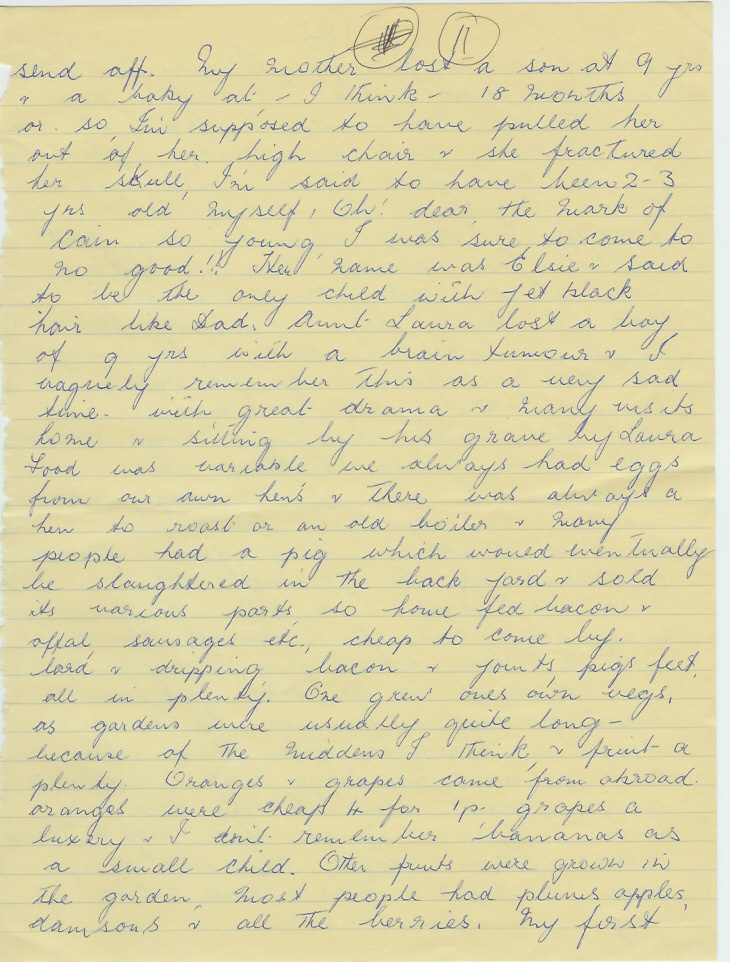 11
send off. My mother lost a son at 9 yrs
& a baby at - I think - 18 months
or so, I'm supposed to have pulled her
out of her high chair & she fractured
her skull, I'm said to have been 2-3
yrs old myself, Oh! dear, the mark of
Cain so young, I was sure, to come to
no good!!! Her name was Elsie & said
to be the only child with jet black
hair like Dad. Aunt Laura lost a boy
of 9 yrs with a brain tumour & I
vaguely remember this as a very sad
time. with great drama & many visits
home & sitting by his grave by Laura
Food was variable we always had eggs
from our own hen's & there was always a
hen to roast or an old boiler & many
people had a pig which would eventually
be slaughtered in the back yard & sold
its various parts, so home fed bacon &
offal, sausages etc., cheap to come by.
lard & dripping, bacon & joints pigs feet,
all in plenty. One grew ones own vegs,
as gardens were usually quite long -
because of the middens I think, & fruit a
plenty. Oranges & grapes came from abroad.
oranges were cheap 4 for 1p. grapes a
luxery & I don't remember bananas as
a small child. Other fruits were grown in
the garden, most people had plums apples,
damsons & all the berries. My first